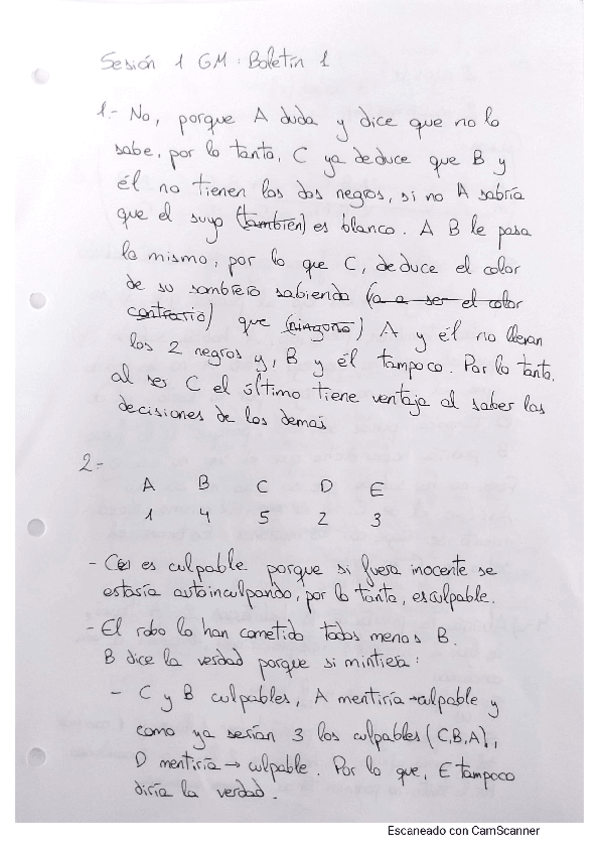 Sesión 1 GM: Boletín 1
1.- No, porque A duda y dice que no lo
sabe, por lo tanto, C ya deduce que B y
él no tienen los dos negros, si no A sabría
que el suyo (también) es blanco. A B le pasa
lo mismo, por lo que C, deduce el color
de su sombrero sabiendo (va a ser el color
contrario) que (ninguno) A y él no llevan
los 2 negros y, B y él tampoco. Por lo tanto,
al ser C el último tiene ventaja al saber las
decisiones de los demás
2-
A B C D E
1 4 5 2 3
- C es culpable porque si fuera inocente se
estaría autoinculpando, por lo tanto, es culpable.
- El robo lo han cometido todos menos B.
B dice la verdad porque si mintiera:
- C y B culpables, A mentiría → culpable y
como ya serían 3 los culpables (C,B,A),
D mentiría → culpable. Por lo que, E tampoco
diría la verdad.
Escaneado con CamScanner